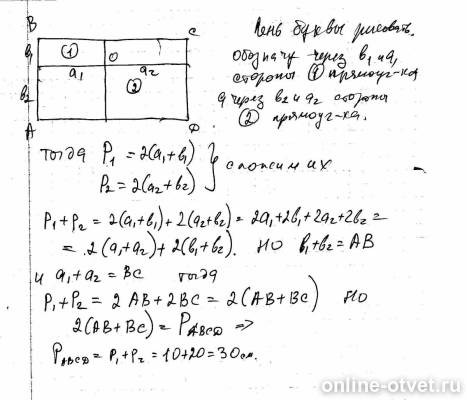 B C
① O
b₁ a₁ a₂
b₂ ②
A D
Лень буквы рисовать.
обозначу через b₁ и a₁
стороны ① прямоуг-ка
а через b₂ и a₂ стороны
② прямоуг-ка.
тогда P₁ = 2(a₁+b₁)
P₂ = 2(a₂+b₂) } сложим их
P₁+P₂ = 2(a₁+b₁)+2(a₂+b₂) = 2a₁+2b₁+2a₂+2b₂ =
= 2(a₁+a₂)+2(b₁+b₂). но b₁+b₂=AB
и a₁+a₂=BC тогда
P₁+P₂ = 2AB+2BC = 2(AB+BC) но
2(AB+BC) = P_ABCD ⇒
P_ABCD = P₁+P₂ = 10+20=30см.
online-otvet.ru